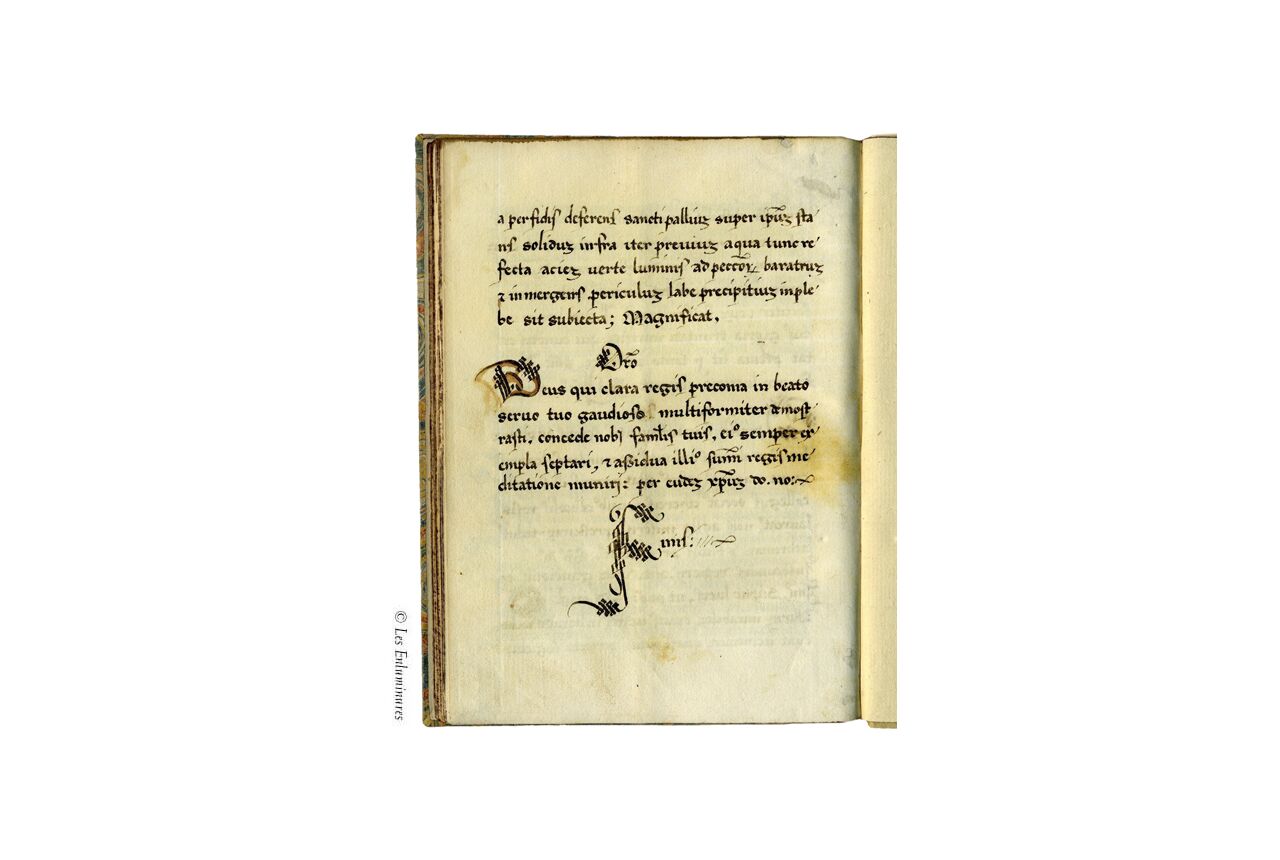 a perfidis deferens sancti palliuz super ip̄uz sta
ns soliduz infra iter preuiuz aqua tunc re
fecta aciez uerte luminis ad peccōꝝ baratruz
⁊ inmergens periculuz labe precipitiuz in ple
be sit subiecta; Magnificat.
Or̄o
Deus qui clara regis preconia in beato
seruo tuo gaudioso multiformiter demost
rasti. concede nobis famul̄is tuis. ei⁹ semper ex
empla sectari, ⁊ assidua illi⁹ sum̄i regis me
ditatione muniri: per eudez xp̄uz do. no:
Finis:
© Les Enluminures